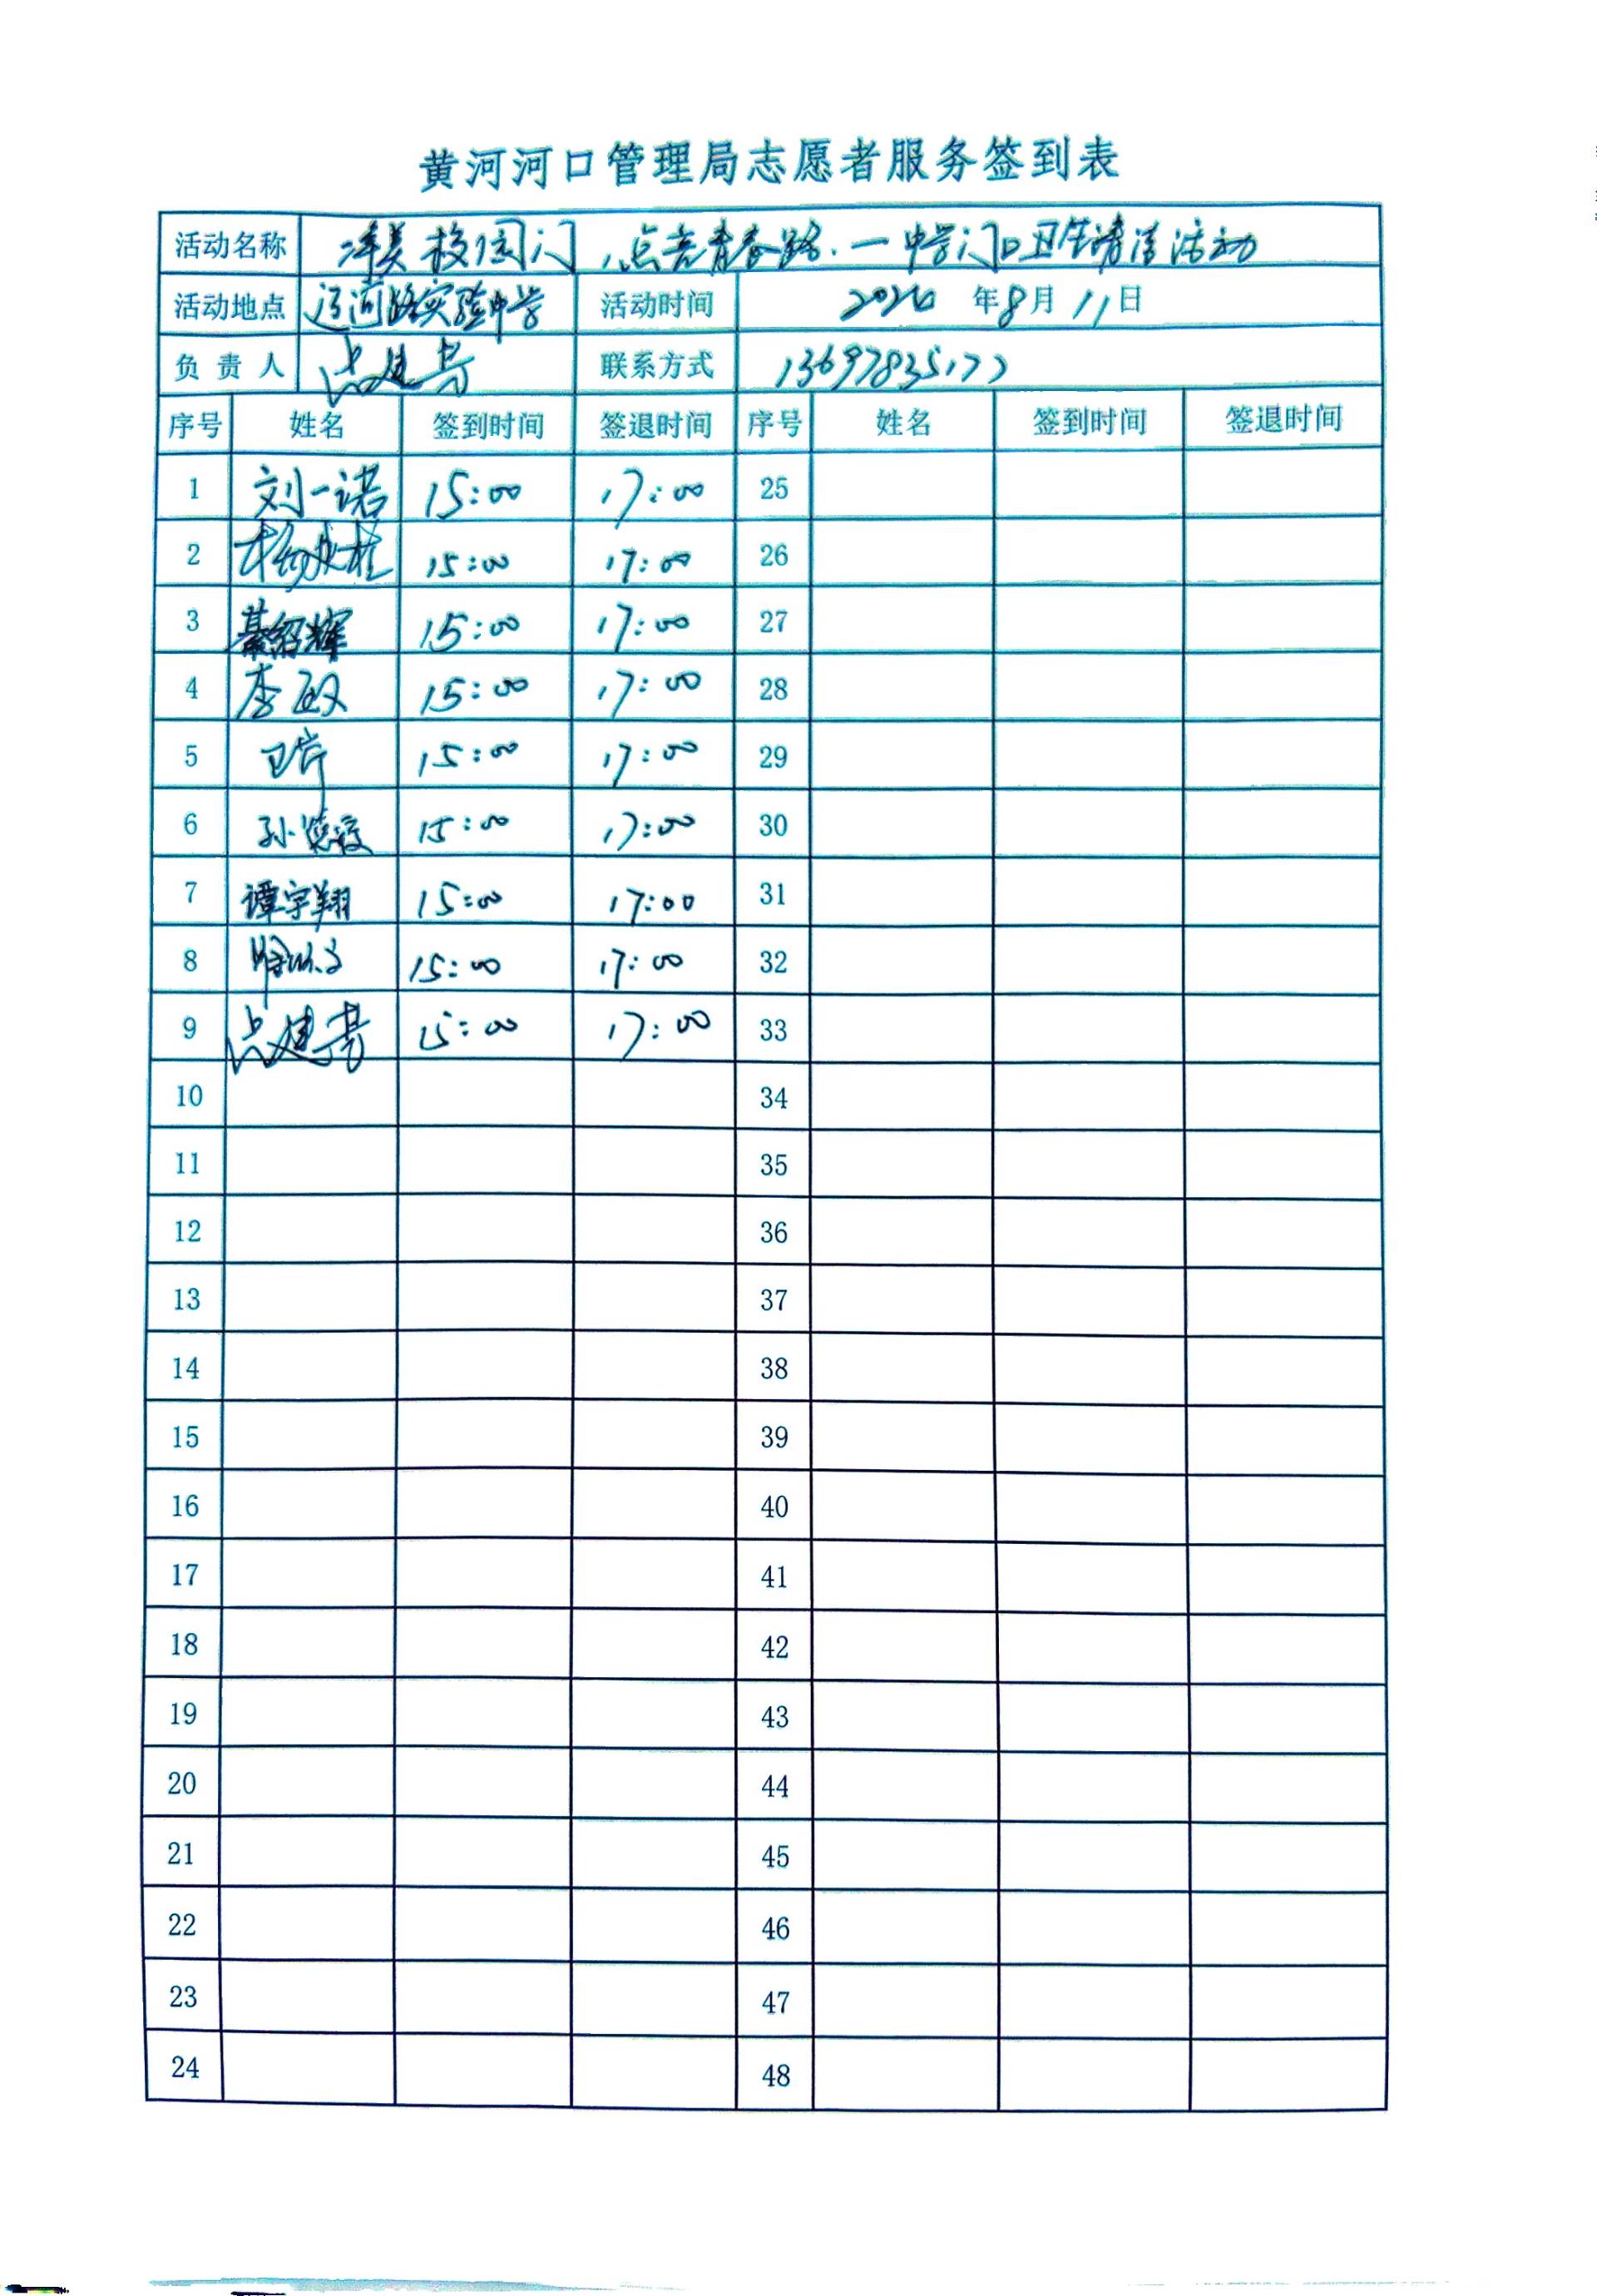 黄河河口管理局志愿者服务签到表
活动名称 净美校园门,点亮青春路.一中学门口卫生清洁活动
活动地点 辽河路实验中学 活动时间 年8月11日
负责人 联系方式
序号 姓名 签到时间 签退时间 序号 姓名 签到时间 签退时间
1 刘一诺 15:00 17:00 25
2 15:00 17:00 26
3 綦绍辉 15:00 17:00 27
4 李政 15:00 17:00 28
5 15:00 17:00 29
6 15:00 17:00 30
7 谭宇翔 15:00 17:00 31
8 15:00 17:00 32
9 15:00 17:00 33
10 34
11 35
12 36
13 37
14 38
15 39
16 40
17 41
18 42
19 43
20 44
21 45
22 46
23 47
24 48